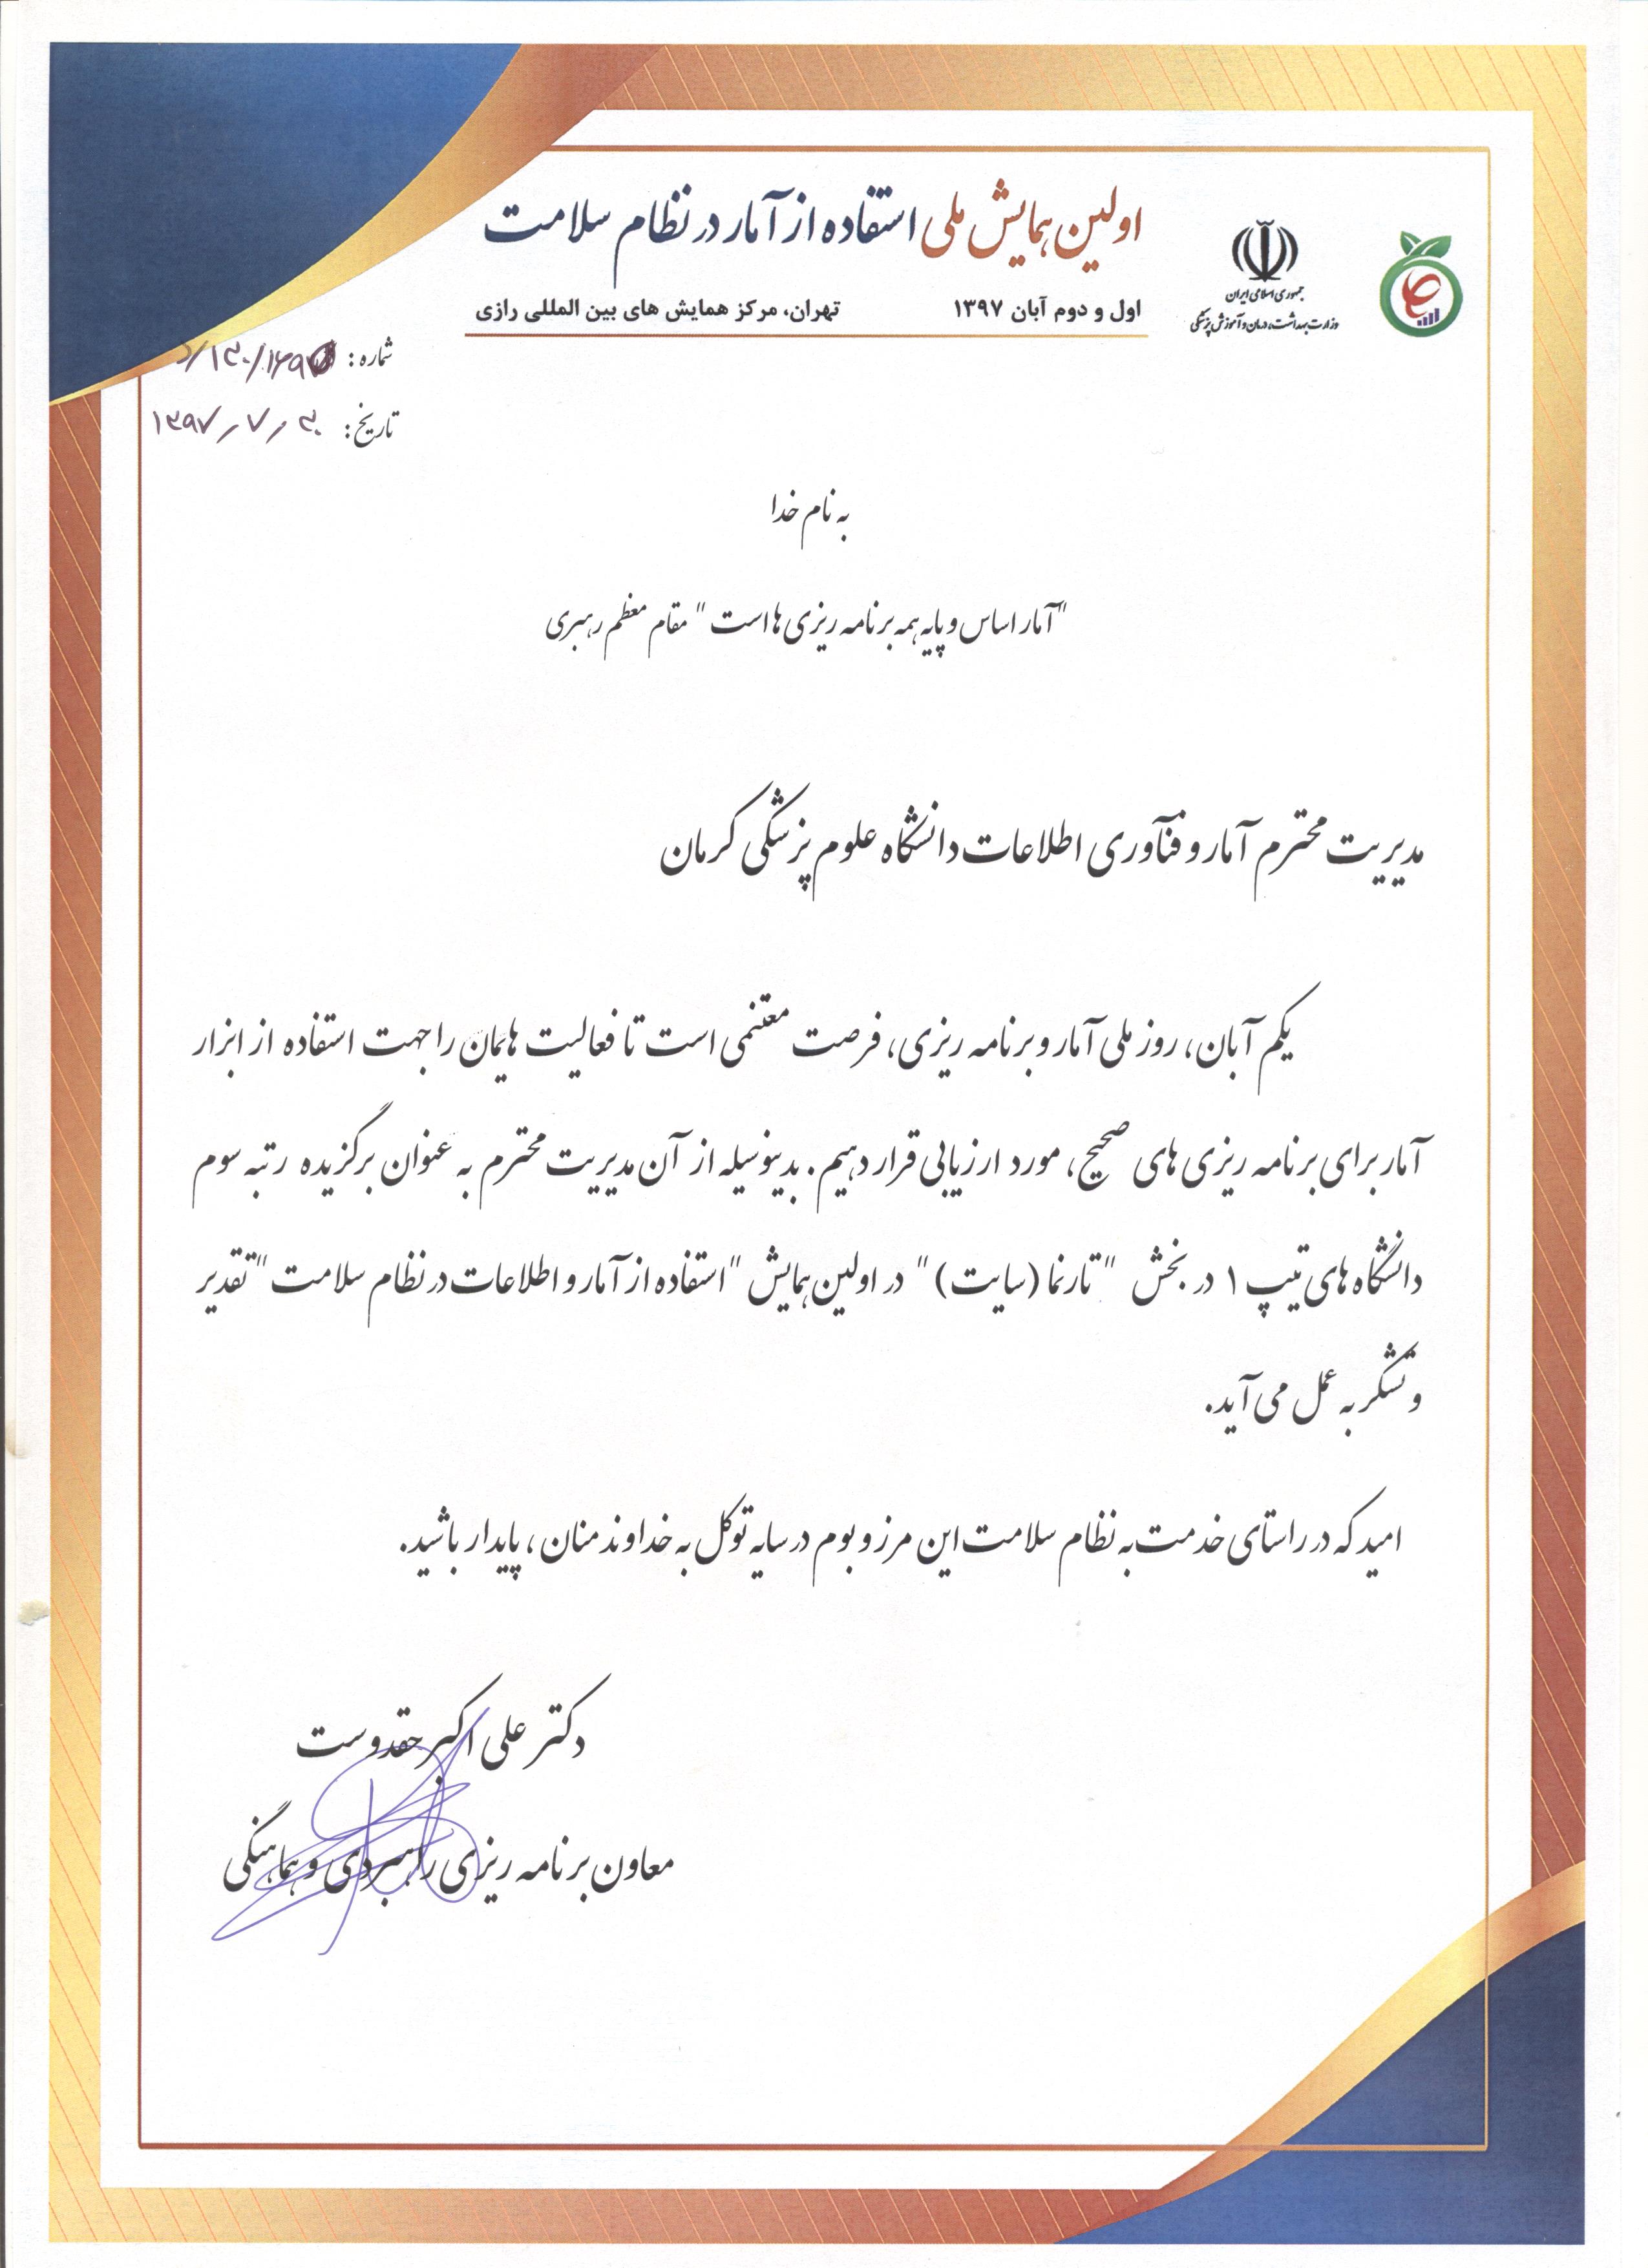 اولین همایش ملی استفاده از آمار در نظام سلامت
اول و دوم آبان ۱۳۹۷ تهران، مرکز همایش های بین المللی رازی
جمهوری اسلامی ایران
وزارت بهداشت، درمان و آموزش پزشکی
شماره:
تاریخ: ۱۳۹۷/۷/۳۰
به نام خدا
"آمار اساس و پایه همه برنامه ریزی ها است" مقام معظم رهبری
مدیریت محترم آمار و فنآوری اطلاعات دانشگاه علوم پزشکی کرمان
یکم آبان، روز ملی آمار و برنامه ریزی، فرصت مغتنمی است تا فعالیت هایمان را جهت استفاده از ابزار
آمار برای برنامه ریزی های صحیح، مورد ارزیابی قرار دهیم. بدینوسیله از آن مدیریت محترم به عنوان برگزیده رتبه سوم
دانشگاه های تیپ ۱ در بخش "تارنما (سایت)" در اولین همایش "استفاده از آمار و اطلاعات در نظام سلامت" تقدیر
و تشکر به عمل می آید.
امید که در راستای خدمت به نظام سلامت این مرز و بوم در سایه توکل به خداوند منان، پایدار باشید.
دکتر علی اکبر حقدوست
معاون برنامه ریزی راهبردی و هماهنگی